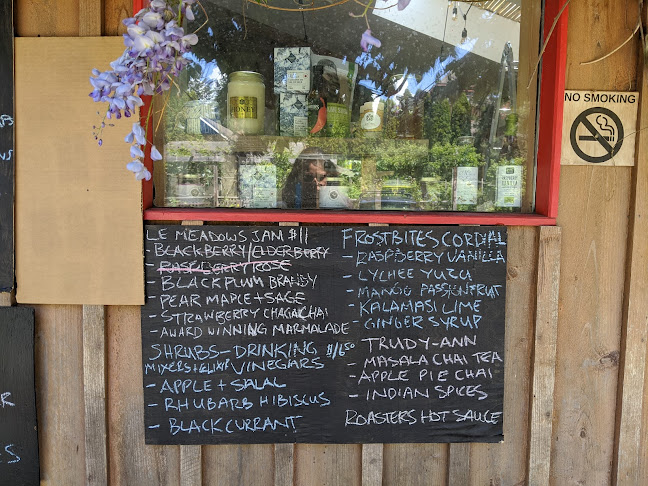 LE MEADOWS JAM $11
- BLACKBERRY/ELDERBERRY
- RASPBERRY ROSE
- BLACK PLUM BRANDY
- PEAR MAPLE + SAGE
- STRAWBERRY CHAGACHAI
- AWARD WINNING MARMALADE
SHRUBS - DRINKING $16.50
MIXERS + ELIXIR VINEGARS
- APPLE + SALAL
- RHUBARB HIBISCUS
- BLACK CURRANT
FROSTBITES CORDIAL
- RASPBERRY VANILLA
- LYCHEE YUZU
- MANGO PASSIONFRUIT
- KALAMASI LIME
- GINGER SYRUP
TRUDY-ANN
- MASALA CHAI TEA
- APPLE PIE CHAI
- INDIAN SPICES
ROASTERS HOT SAUCE
NO SMOKING
HONEY